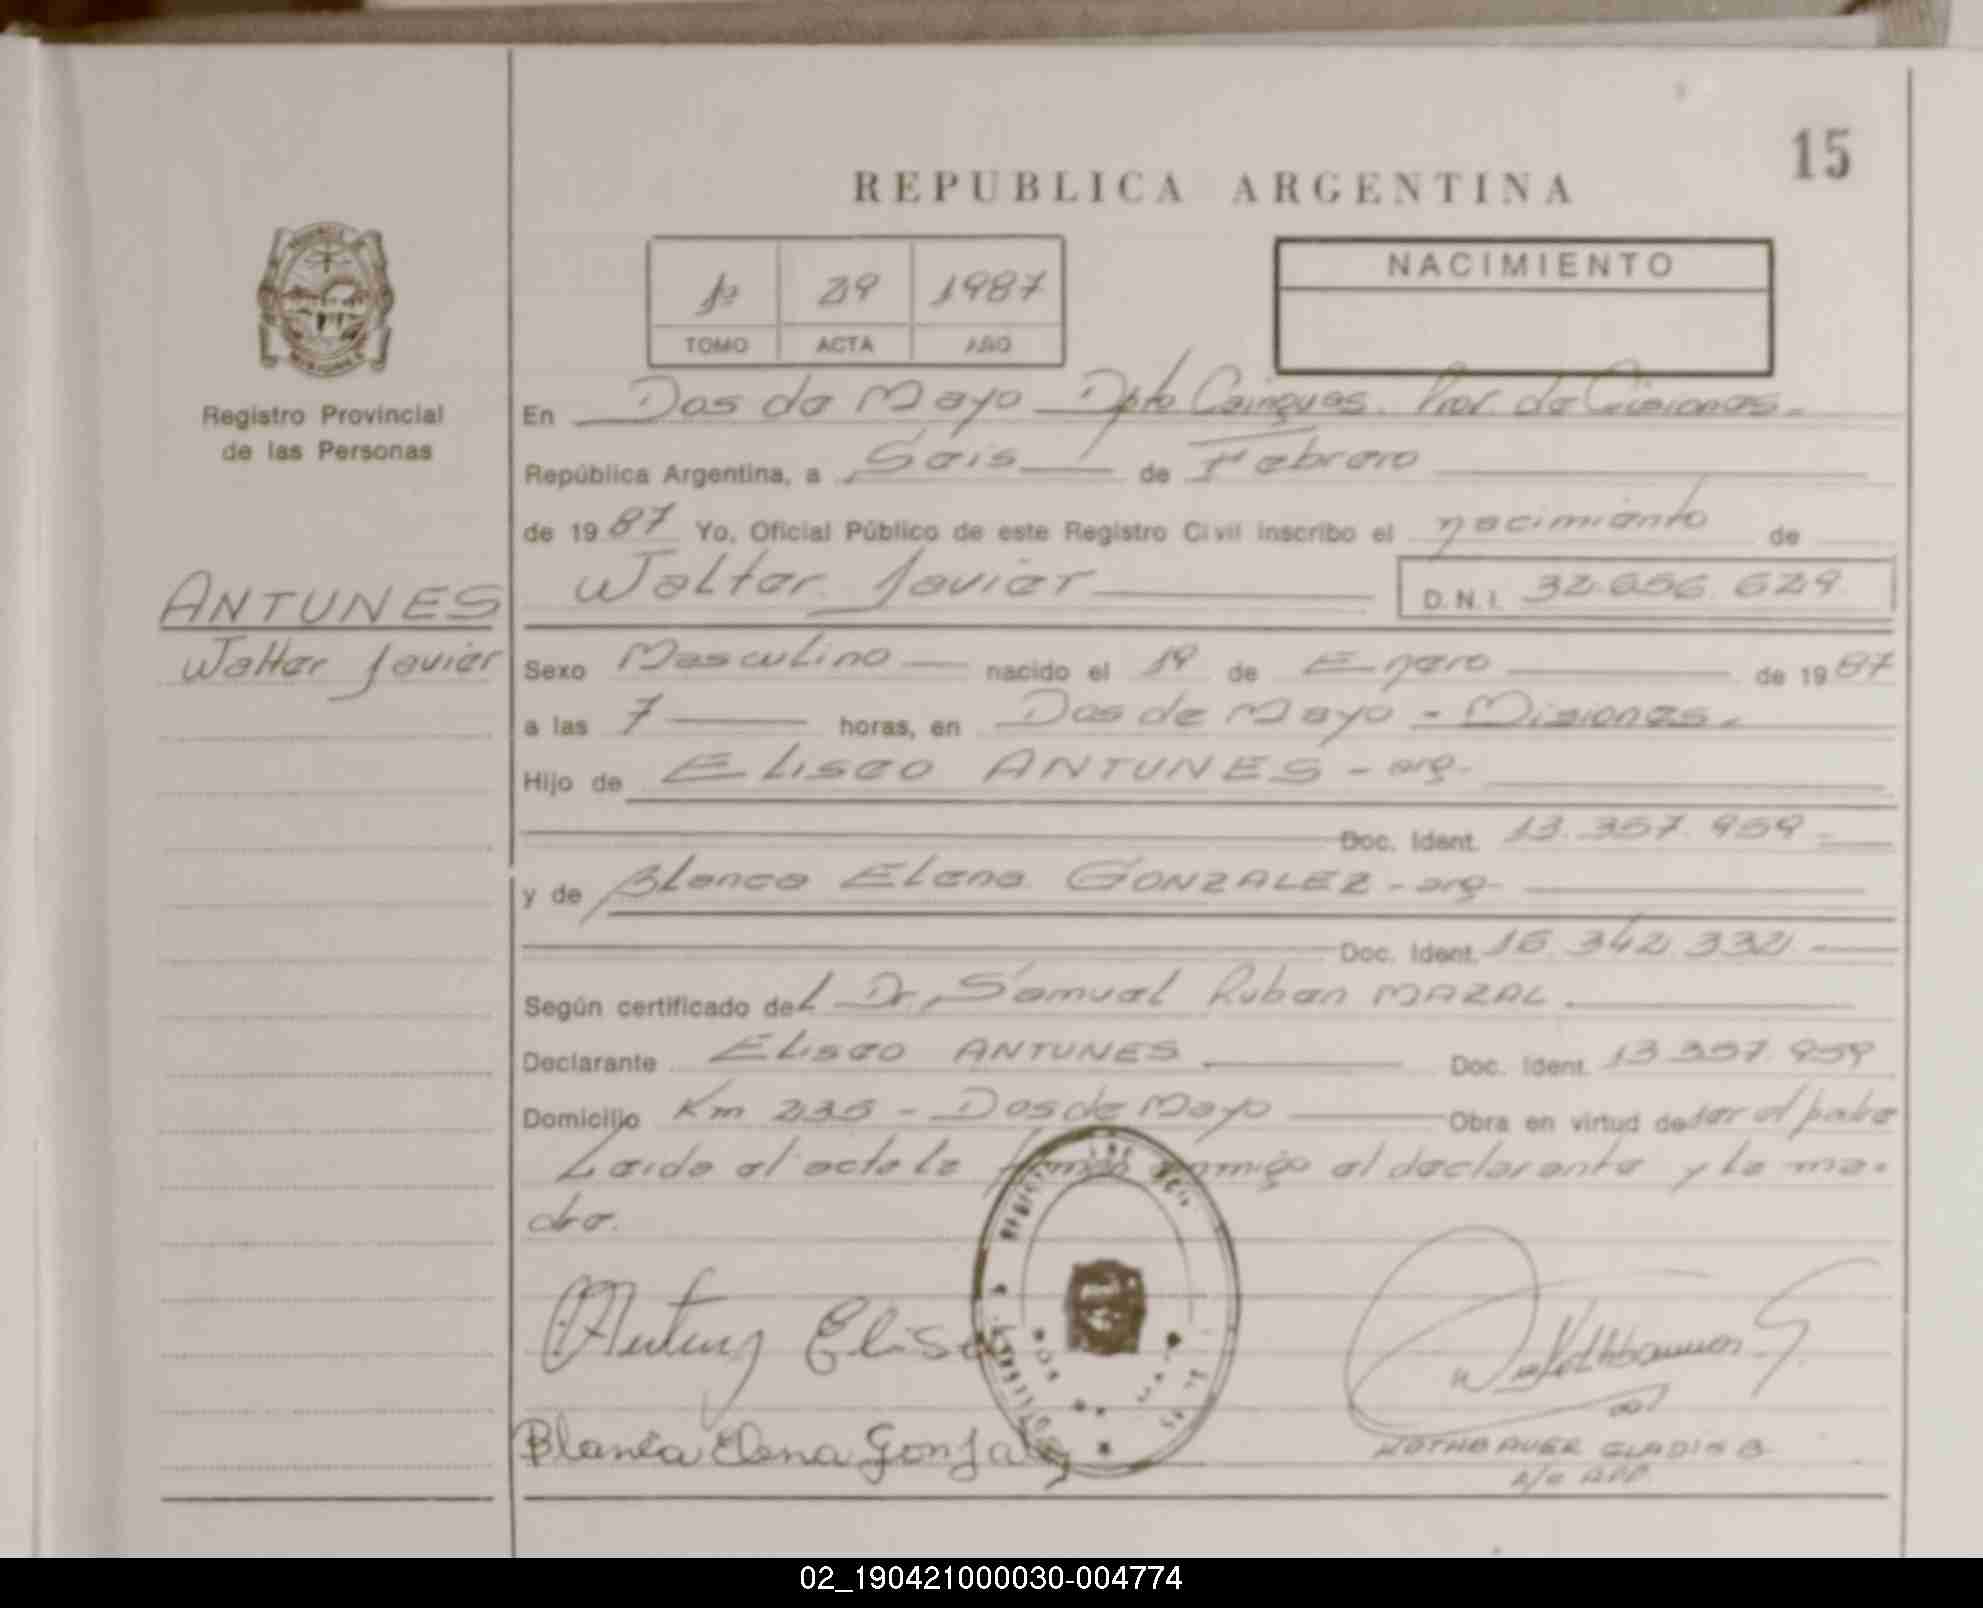 15
REPUBLICA ARGENTINA
1º 29 1987
TOMO ACTA AÑO
NACIMIENTO
Registro Provincial
de las Personas
En Dos de Mayo Dpto Cainguas. Prov. de Misiones.-
República Argentina, a Seis de Febrero
de 1987 Yo, Oficial Público de este Registro Civil inscribo el nacimiento de
Walter Javier D.N.I. 32.656.629
ANTUNES
Walter Javier
Sexo Masculino nacido el 19 de Enero de 1987
a las 7 horas, en Dos de Mayo - Misiones.
Hijo de Eliseo ANTUNES - arg-
Doc. Ident. 13.357.959
y de Blanca Elena GONZALEZ - arg-
Doc. Ident. 16.342.332
Según certificado del Dr. Samuel Ruben MAZAL
Declarante Eliseo ANTUNES Doc. Ident. 13.357.959
Domicilio Km 235 - Dos de Mayo Obra en virtud de ser el padre
Leida el acta la firman conmigo el declarante y la ma-
dre.
Antunez Eliseo
Blanca Elena Gonzalez
ROTHBAUER GLADIS B.
02_190421000030-004774